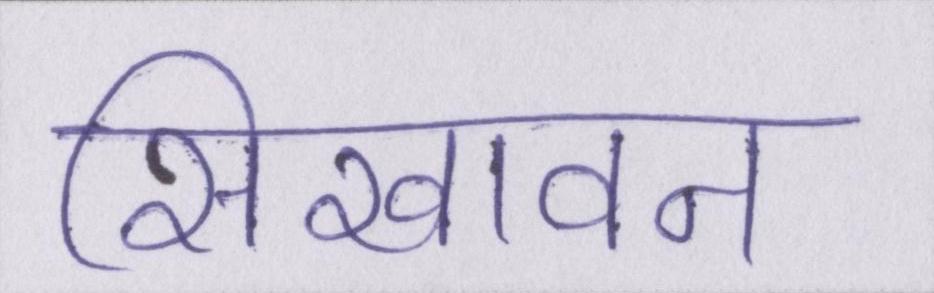 सिखावन